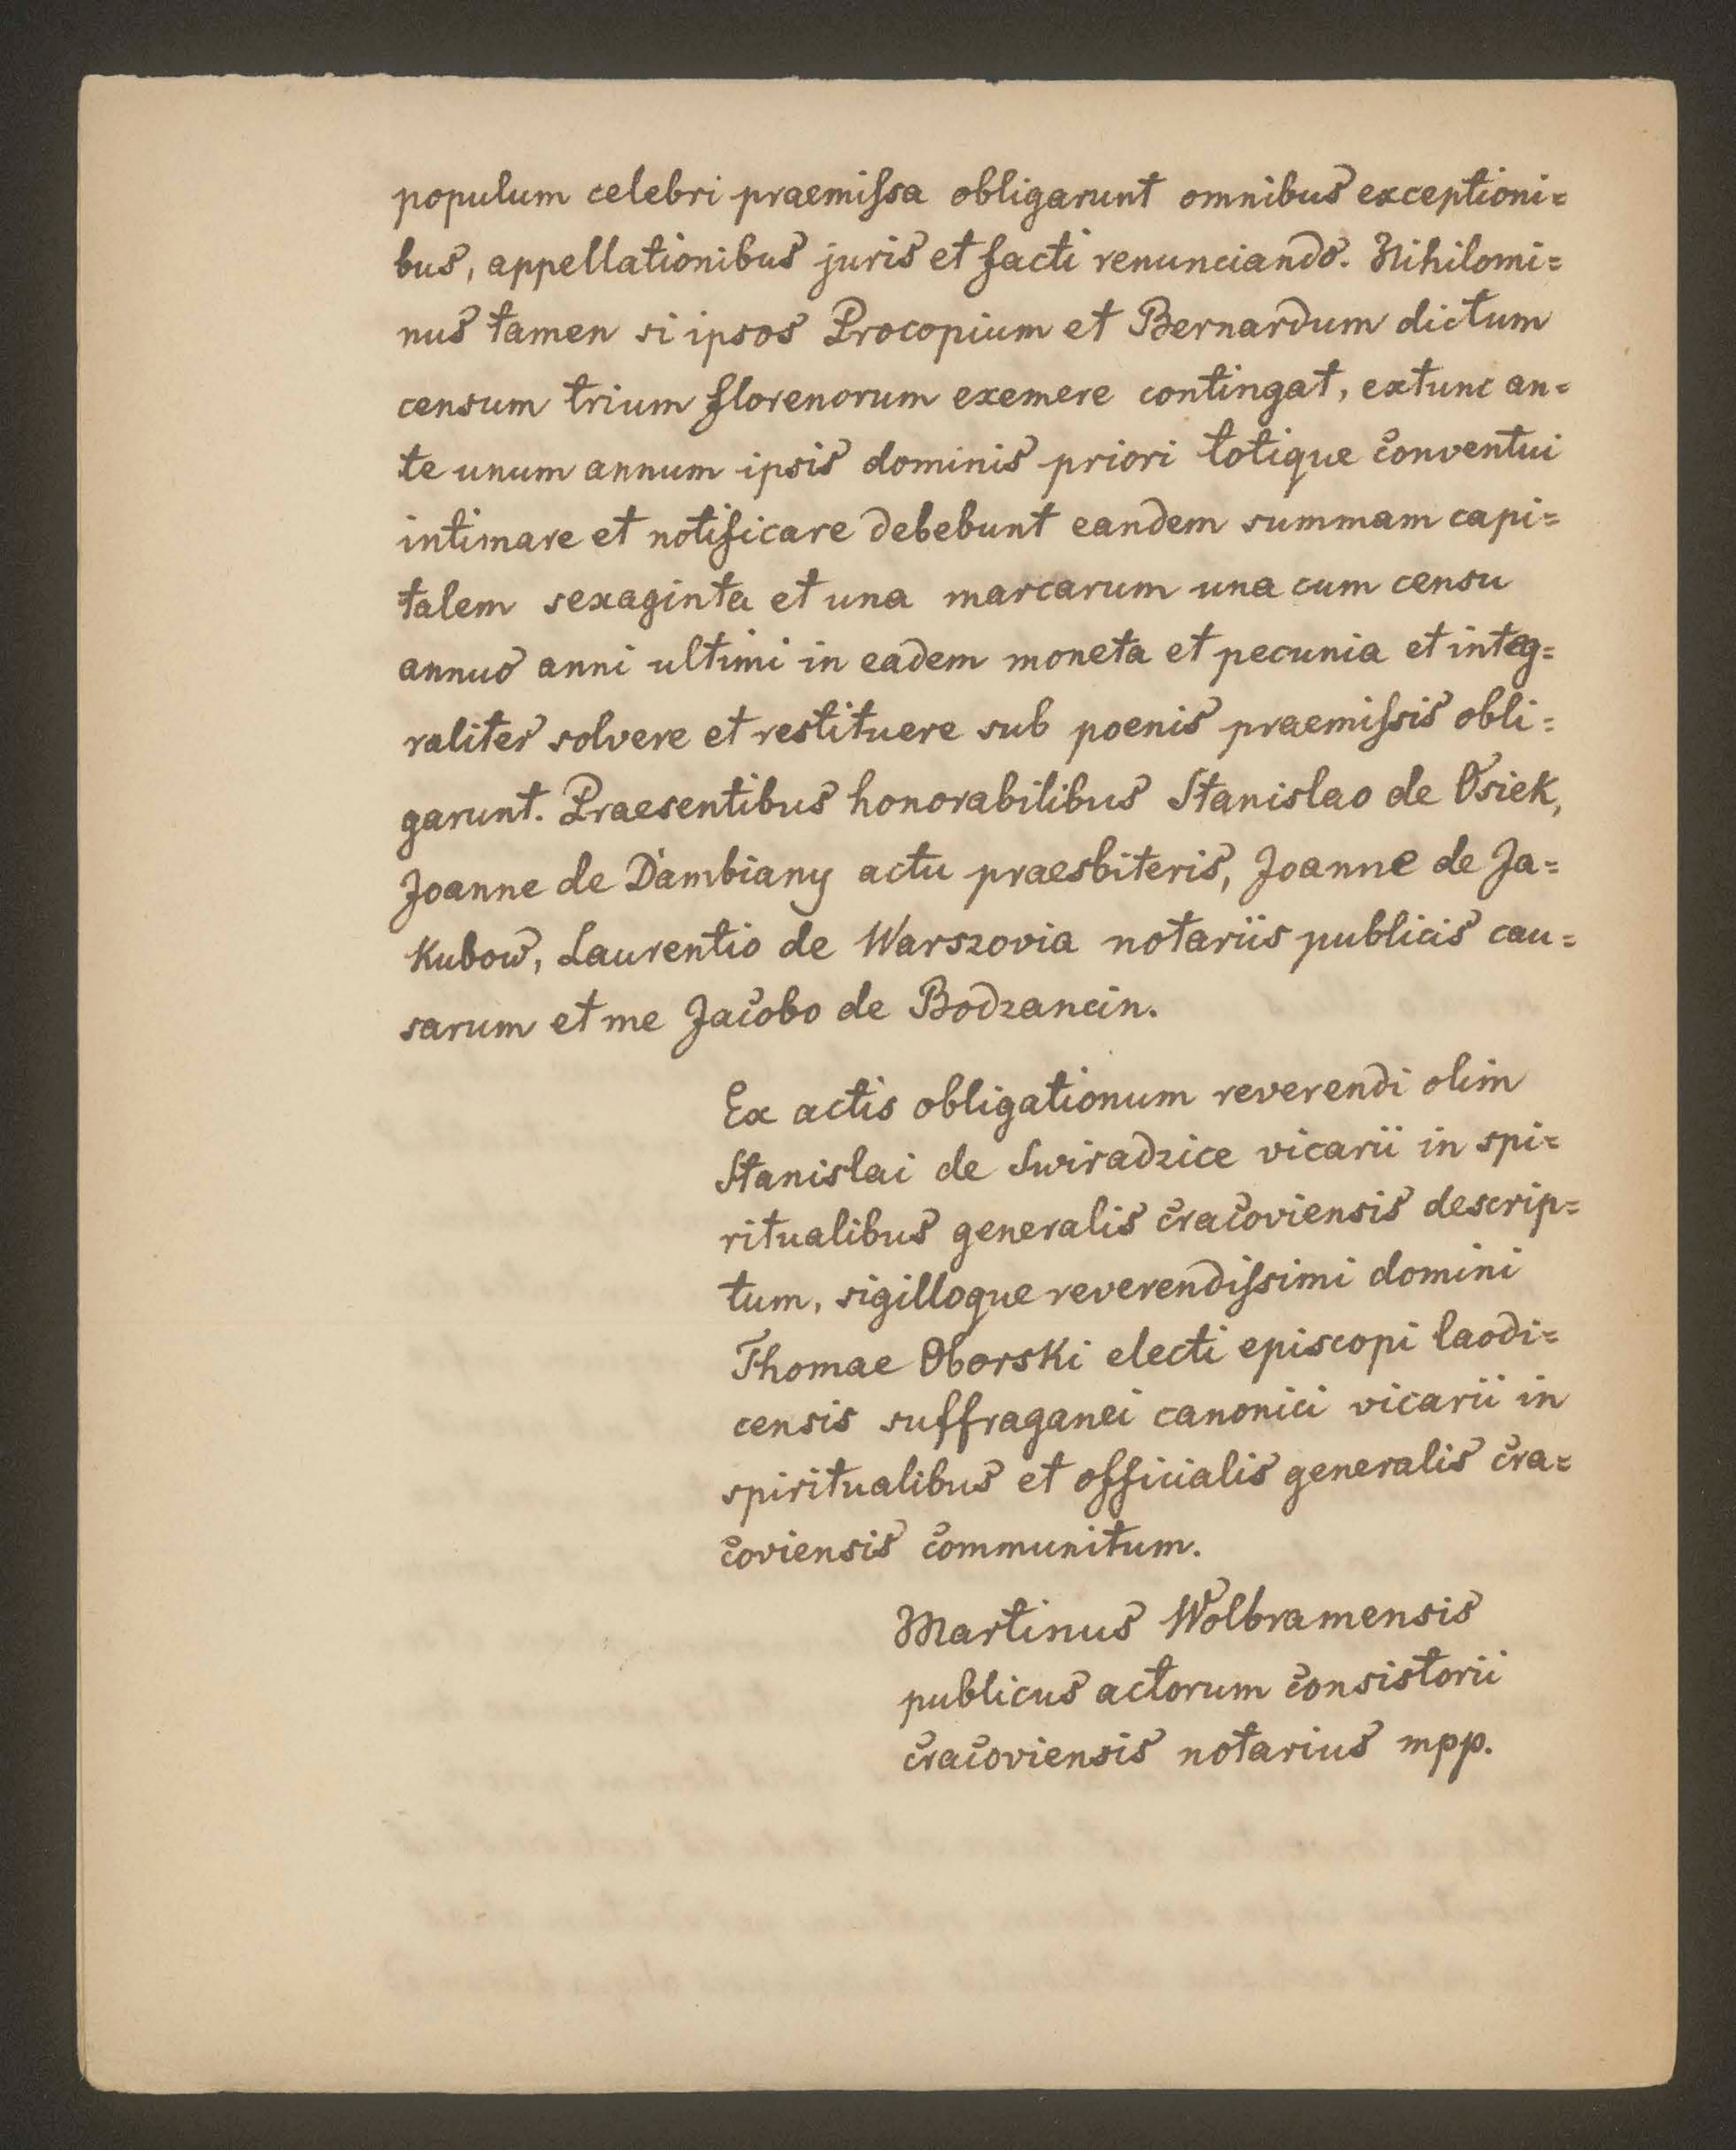 populum celebri praemiſsa obligarunt omnibus exceptioni=
bus, appellationibus juris et facti renunciando. Nihilomi=
nus tamen si ipsos Procopium et Bernardum dictum
censum trium florenorum exemere contingat, extunc an=
te unum annum ipsis dominis priori totique conventui
intimare et notificare debebunt eandem summam capi=
talem sexaginta et una marcarum una cum censu
annuo anni ultimi in eadem moneta et pecunia et integ=
raliter solvere et restituere sub poenis praemiſsis obli=
garunt. Praesentibus honorabilibus Stanislao de Osiek,
Joanne de Dambiany actu praesbiteris, Joanne de Ja=
kubow, Laurentio de Warszovia notariis publicis cau=
sarum et me Jacobo de Bodzancin.
Ex actis obligationum reverendi olim
Stanislai de Swiradzice vicarii in spi=
ritualibus generalis cracoviensis descrip=
tum, sigilloque reverendiſsimi domini
Thomae Oborski electi episcopi laodi=
censis suffraganei canonici vicarii in
spiritualibus et officialis generalis cra=
coviensis communitum.
Martinus Wolbramensis
publicus actorum consistorii
cracoviensis notarius mpp.